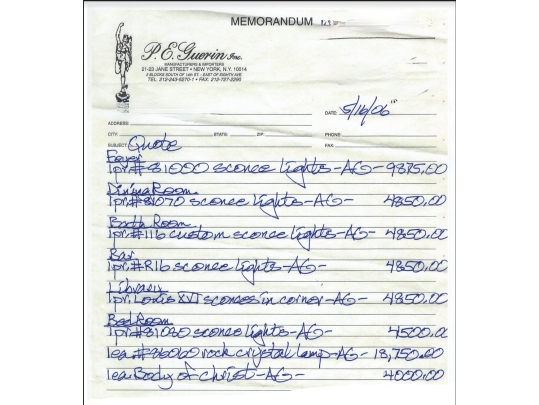 MEMORANDUM
P.E. Guerin Inc.
MANUFACTURERS & IMPORTERS
21-23 JANE STREET • NEW YORK, N.Y. 10014
2 BLOCKS SOUTH OF 14th ST. - EAST OF EIGHTH AVE
TEL. 212-243-5270-1 • FAX 212-727-2290
DATE: 5/16/06
ADDRESS:
CITY: STATE: ZIP PHONE
SUBJECT: Quote FAX:
Foyer
1pr.#81000 sconce lights-AG- 9375.00
Dining Room
1pr#81070 sconce lights-AG- 4850.00
Bath Room
1pr.#116 custom sconce lights-AG- 4850.00
Bar
1pr.#R16 sconce lights-AG- 4850.00
Library
1pr. Louis XVI sconces in corner-AG- 4850.00
Bed Room
1pr#81030 sconce lights-AG- 4500.00
1ea.#86060 rock crystal lamp-AG- 18,750.00
1ea Body of Christ-AG- 4000.00